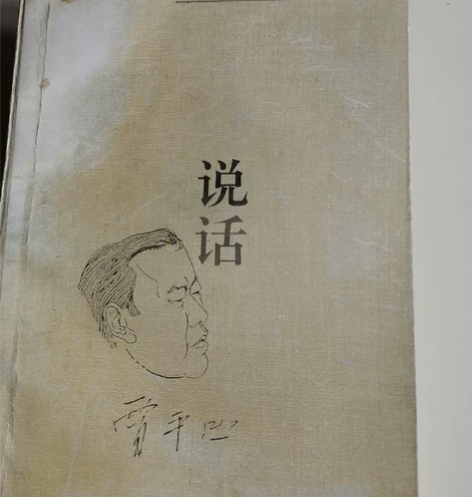 说
话
贾平凹